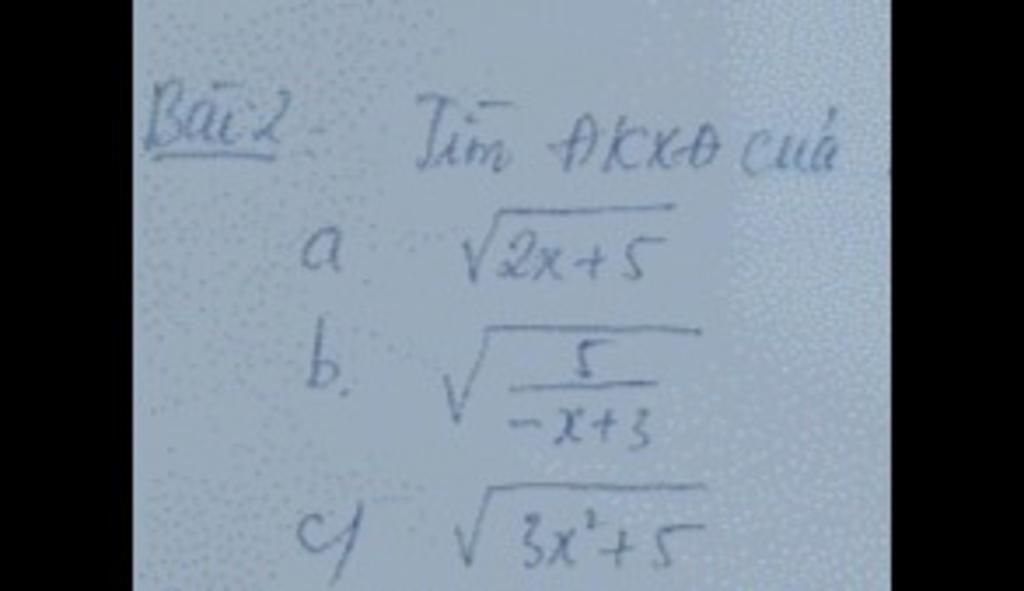 Bài 2 Tìm ĐKXĐ của
a √(2x+5)
b. √(5/(-x+3))
c) √(3x²+5)